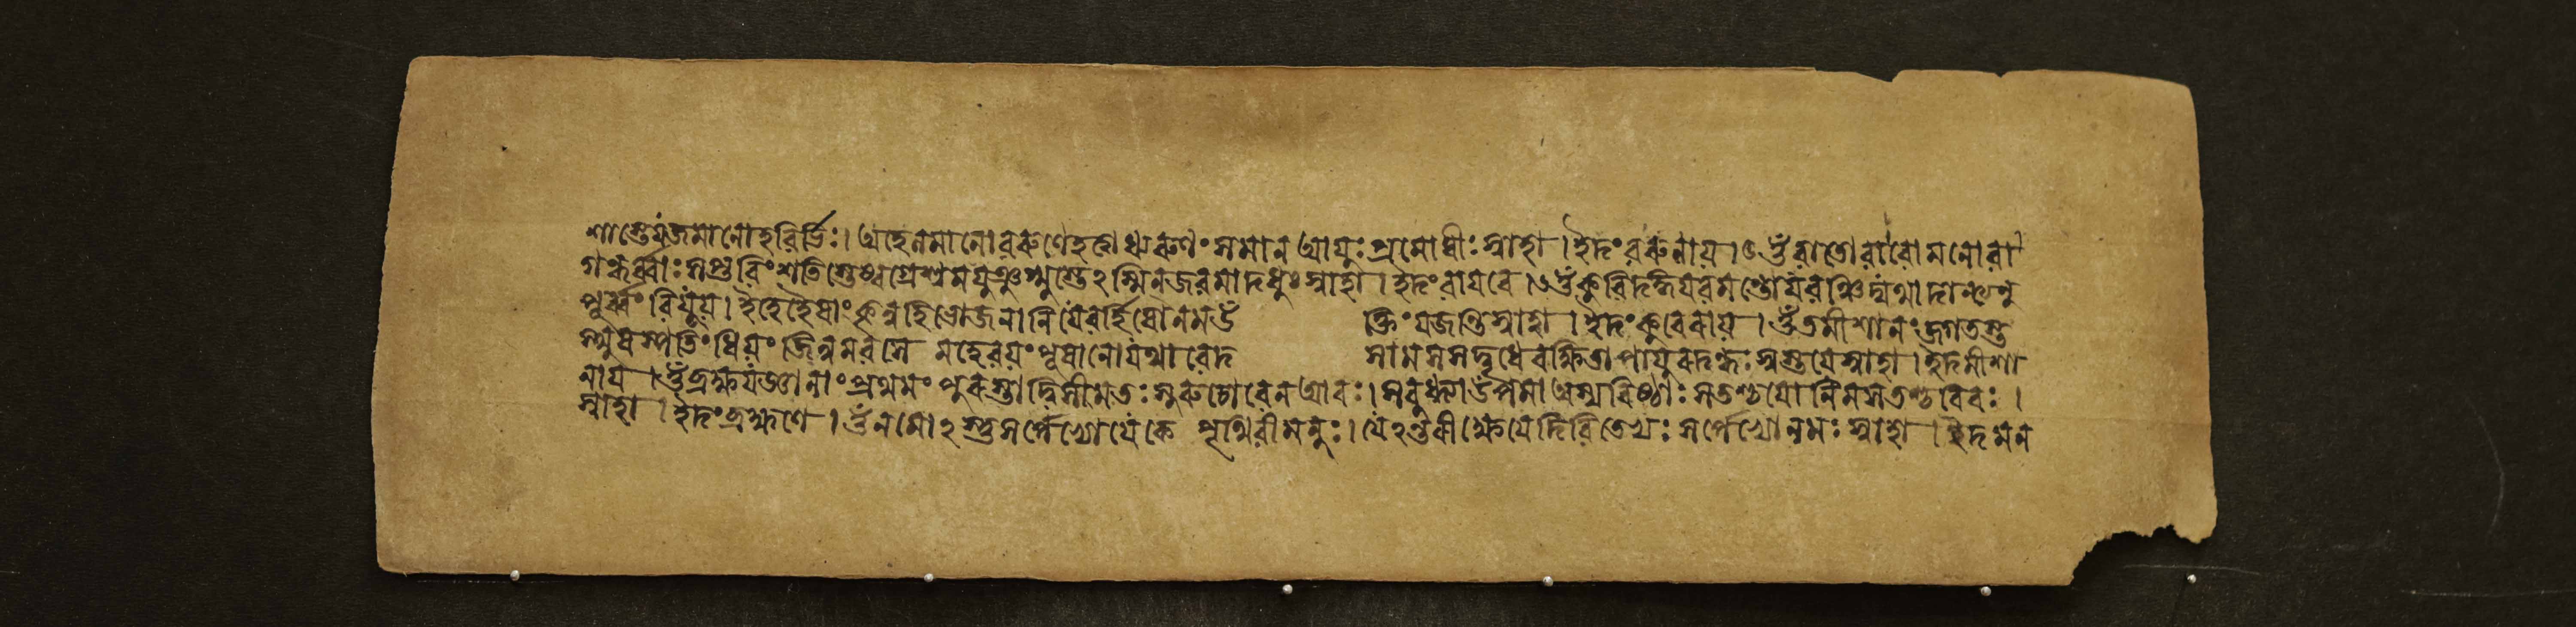 শাস্তেযজমানোহবির্ভিঃ। অহেলমানোবৰুণেহবোধ্যুৰুশꣳসমানআয়ুঃপ্রমোষীঃস্বাহা। ইদংবৰুণায়। ওঁবাতোবাবোমনোবা
গন্ধর্ব্বাঃসপ্তবিꣳশতিস্তেঅগ্রেঅশ্বমযুঞ্জꣳস্তেঽস্মিনজবমাদধুঃস্বাহা। ইদংবায়বে। ওঁকুবিদঙ্গযবমন্তোযবঞ্চিদ্যথাদান্ত্যনু
পূর্ব্বংবিযূয়। ইহেহৈষাংকৃণুহিভোজনানিযেবর্হিষোনমউ ক্তিংযজন্তিস্বাহা। ইদংকুবেৰায়। ওঁতমীশানংজগতস্তু
স্থুষস্পতিংধিয়ংজিন্বমবসে মহেবয়ংপূষানোযথাবেদ সামসদ্বৃধেৰক্ষিতাপায়ুৰদব্ধঃস্বস্তয়েস্বাহা। ইদমীশা
নায়। ওঁব্রহ্মযজ্ঞানংপ্রথমংপুৰস্তাদ্বিসীমতঃসুৰুচোবেনআবঃ। সবুধ্ন্যাউপমাঅস্যবিষ্ঠাঃসতশ্চযোনিমসতশ্চবিবঃ।
স্বাহা। ইদংব্রহ্মণে। ওঁনমোঽস্তুসর্পেভ্যোযেকে পৃথিবীমনুঃ। যেঽন্তৰীক্ষেযেদিবিতেভ্যঃসর্পেভ্যোনমঃস্বাহা। ইদমন